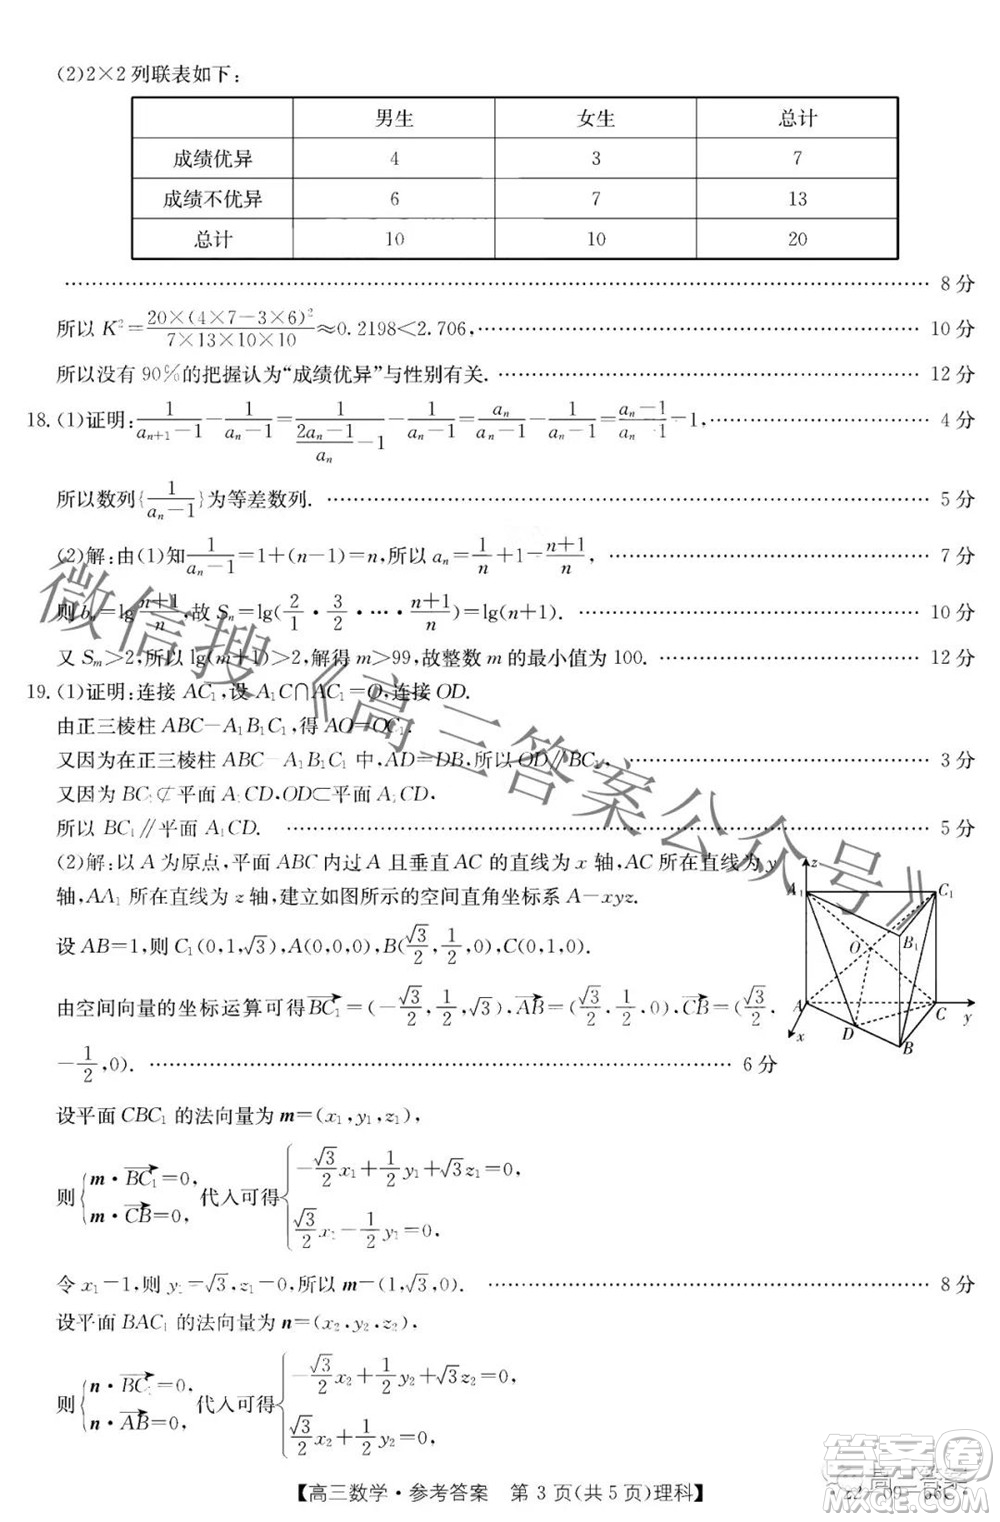 (2)2×2 列联表如下:
男生 女生 总计
成绩优异 4 3 7
成绩不优异 6 7 13
总计 10 10 20
…… 8 分
所以 K²=\frac{20×(4×7-3×6)²}{7×13×10×10}≈0.2198<2.706, …… 10 分
所以没有 90%的把握认为“成绩优异”与性别有关. …… 12 分
18.(1)证明:\frac{1}{a_{n+1}-1}-\frac{1}{a_n-1}=\frac{1}{\frac{2a_n-1}{a_n}-1}-\frac{1}{a_n-1}=\frac{a_n}{a_n-1}-\frac{1}{a_n-1}=\frac{a_n-1}{a_n-1}=1, …… 4 分
所以数列{\frac{1}{a_n-1}}为等差数列. …… 5 分
(2)解:由(1)知\frac{1}{a_n-1}=1+(n-1)=n,所以 a_n=\frac{1}{n}+1=\frac{n+1}{n}, …… 7 分
则 b_n=lg\frac{n+1}{n},故 S_n=lg(\frac{2}{1}·\frac{3}{2}·…·\frac{n+1}{n})=lg(n+1), …… 10 分
又 S_m>2,所以 lg(m+1)>2,解得 m>99,故整数 m 的最小值为 100. …… 12 分
19.(1)证明:连接 AC₁,设 A₁C∩AC₁=O,连接 OD.
由正三棱柱 ABC-A₁B₁C₁,得 AO=OC₁.
又因为在正三棱柱 ABC-A₁B₁C₁ 中,AD=DB,所以 OD∥BC₁, …… 3 分
又因为 BC₁⊄平面 A₁CD,OD⊂平面 A₁CD,
所以 BC₁∥平面 A₁CD. …… 5 分
(2)解:以 A 为原点,平面 ABC 内过 A 且垂直 AC 的直线为 x 轴,AC 所在直线为 y
轴,AA₁ 所在直线为 z 轴,建立如图所示的空间直角坐标系 A-xyz.
设 AB=1,则 C₁(0,1,√3),A(0,0,0),B(\frac{√3}{2},\frac{1}{2},0),C(0,1,0),
由空间向量的坐标运算可得\overrightarrow{BC₁}=(-\frac{√3}{2},\frac{1}{2},√3),\overrightarrow{AB}=(\frac{√3}{2},\frac{1}{2},0),\overrightarrow{CB}=(\frac{√3}{2},
-\frac{1}{2},0). …… 6 分
z
A₁
C₁
O
B₁
A
C
y
x
D
B
设平面 CBC₁ 的法向量为 m=(x₁,y₁,z₁),
则{m·\overrightarrow{BC₁}=0, m·\overrightarrow{CB}=0, 代入可得{-\frac{√3}{2}x₁+\frac{1}{2}y₁+√3z₁=0, \frac{√3}{2}x₁-\frac{1}{2}y₁=0,
令 x₁=1,则 y₁=√3,z₁=0,所以 m=(1,√3,0). …… 8 分
设平面 BAC₁ 的法向量为 n=(x₂,y₂,z₂),
则{n·\overrightarrow{BC₁}=0, n·\overrightarrow{AB}=0, 代入可得{-\frac{√3}{2}x₂+\frac{1}{2}y₂+√3z₂=0, \frac{√3}{2}x₂+\frac{1}{2}y₂=0,
【高三数学·参考答案 第 3 页(共 5 页)理科】
微信搜《高三答案公众号》
答案卷